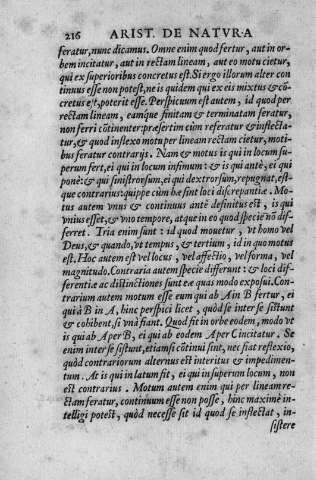 216 ARIST. DE NATVRA
feratur, nunc dicamus. Omne enim quod fertur, aut in or-
bem incitatur, aut in rectam lineam, aut eo motu cietur,
qui ex superioribus concretus est. Si ergo illorum alter con
tinuus esse non potest, ne is quidem qui ex eis mixtus & cō-
cretus est, poterit esse. Perspicuum est autem, id quod per
rectam lineam, eamque finitam & terminatam feratur,
non ferri cōtinenter: præsertim cùm referatur & inflecta-
tur, & quod inflexo motu per lineam rectam cietur, moti-
bus feratur contrarijs. Nam & motus is qui in locum su-
perum fert, ei qui in locum infimum: & is qui antè, ei qui
ponè: & qui sinistrorsum, ei qui dextrorsum, repugnat, est-
que contrarius: quippe cùm hæ sint loci discrepantiæ. Mo-
tus autem vnus & continuus antè definitus est, is qui
vnius esset, & vno tempore, atque in eo quod specie nō dif-
ferret. Tria enim sunt: id quod mouetur, vt homo vel
Deus, & quando, vt tempus, & tertium, id in quo motus
est. Hoc autem est vel locus, vel affectio, vel forma, vel
magnitudo. Contraria autem specie differunt: & loci dif-
ferentiæ ac distinctiones sunt eæ quas modo exposui. Con-
trarium autem motum esse eum qui ab A in B fertur, ei
qui à B in A, hinc perspici licet, quòd se inter se sistunt
& cohibent, si vnà fiant. Quod fit in orbe eodem, modo vt
is qui ab A per B, ei qui ab eodem A per C incitatur. Se
enim inter se sistunt, etiamsi cōtinui sint, nec fiat reflexio,
quòd contrariorum alternus est interitus & impedimen-
tum. At is qui in latum fit, ei qui in superum locum, non
est contrarius. Motum autem enim qui per lineam re-
ctam feratur, continuum esse non posse, hinc maximè in-
telligi potest, quòd necesse sit id quod se inflectat, in-
sistere